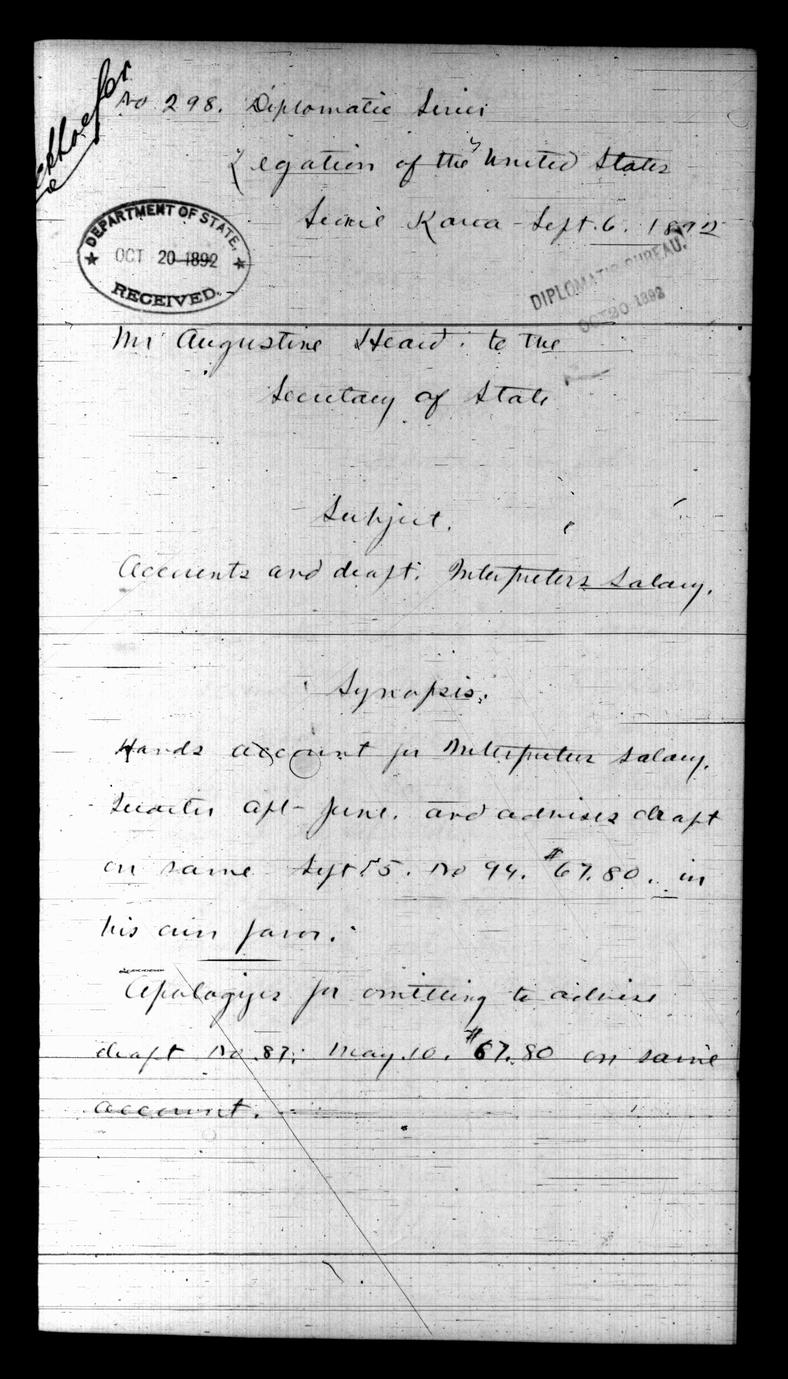 No 298. Diplomatic Series
Legation of the United States
Seoul Korea - Sept. 6. 1892
DEPARTMENT OF STATE,
OCT 20 1892
RECEIVED.
DIPLOMATIC BUREAU.
OCT 20 1892
Mr Augustine Heard. to the
Secretary of State
Subject.
Accounts and draft. Interpreters Salary.
Synopsis.
Hands account for Interpreters Salary.
Quarter Apl - June. and advises draft
on same Sept 5. No 94. $67.80. in
his own favor.
Apologizes for omitting to advise
draft No. 87. May. 10. $67.80 on same
account.